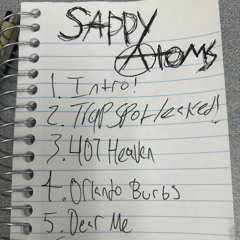 SAPPY
ATOMS
1. Intro!
2. Trapspot leaked!
3. 407 Heaven
4. Orlando Burbs
5. Dear Me